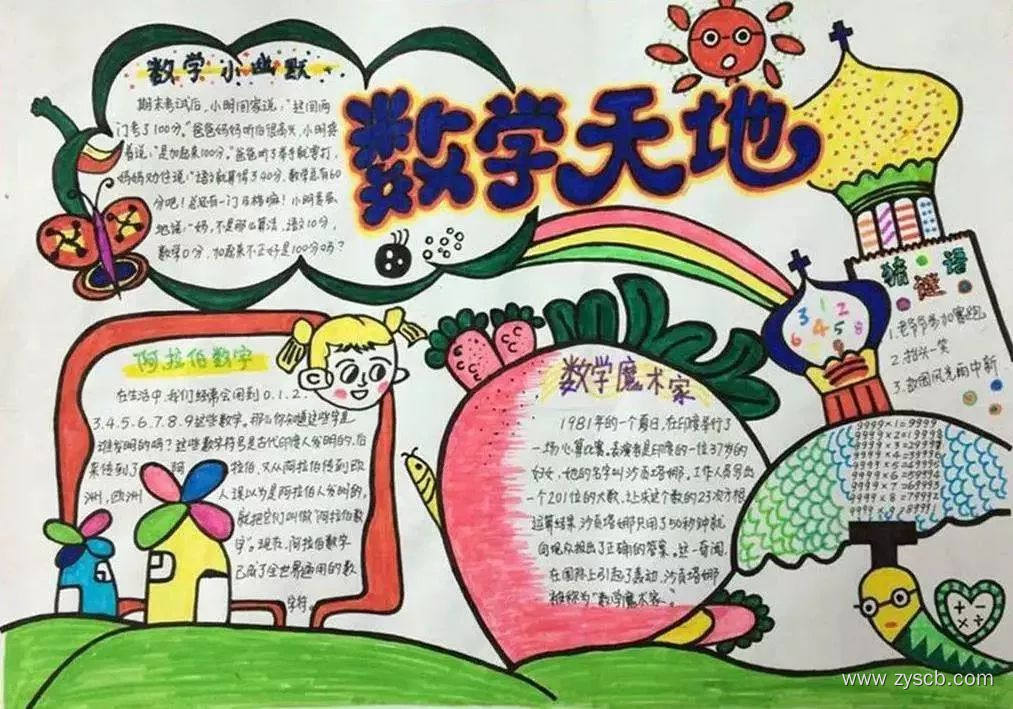 数学天地
数学小幽默
期末考试后，小明回家说："这回两
门考了100分。"爸爸妈妈听后很高兴，小明接
着说："是加起来100分。"爸爸听了举手就要打，
妈妈劝住说："语文就算得了40分，数学总有60
分吧！总还有一门及格嘛！小明委屈
地说："妈，不是那么算法，语文10分，
数学0分，加起来不正好是100分吗？
猜谜语
1.老爷爷参加赛跑
2.抬头一笑
3.故园风光雨中新
3 1 2
6 4 5 8
阿拉伯数字
在生活中，我们经常会用到0.1.2.
3.4.5.6.7.8.9这些数字。那么你知道这些数字是
谁发明的吗？这些数字符号是古代印度人发明的，后
来传到了阿拉伯，又从阿拉伯传到欧
洲，欧洲人误以为是阿拉伯人发明的，
就把它们叫做"阿拉伯数
字"。现在，阿拉伯数字
已成了全世界通用的数
字符。
数学魔术家
1981年的一个夏日，在印度举行了
一场心算比赛。表演者是印度的一位37岁的
妇女，她的名字叫沙贡塔娜。工作人员写出
一个201位的大数，让求这个数的23次方根
运算结果，沙贡塔娜只用了50秒钟就
向观众报出了正确的答案。这一奇闻，
在国际上引起了轰动，沙贡塔娜
被称为"数学魔术家"。
9999×1=9999
9999×2=19998
9999×3=29997
9999×4=39996
9999×5=49995
9999×6=59994
9999×7=69993
9999×8=79992
9999×9=89991
+ -
× ÷
www.zyscb.com